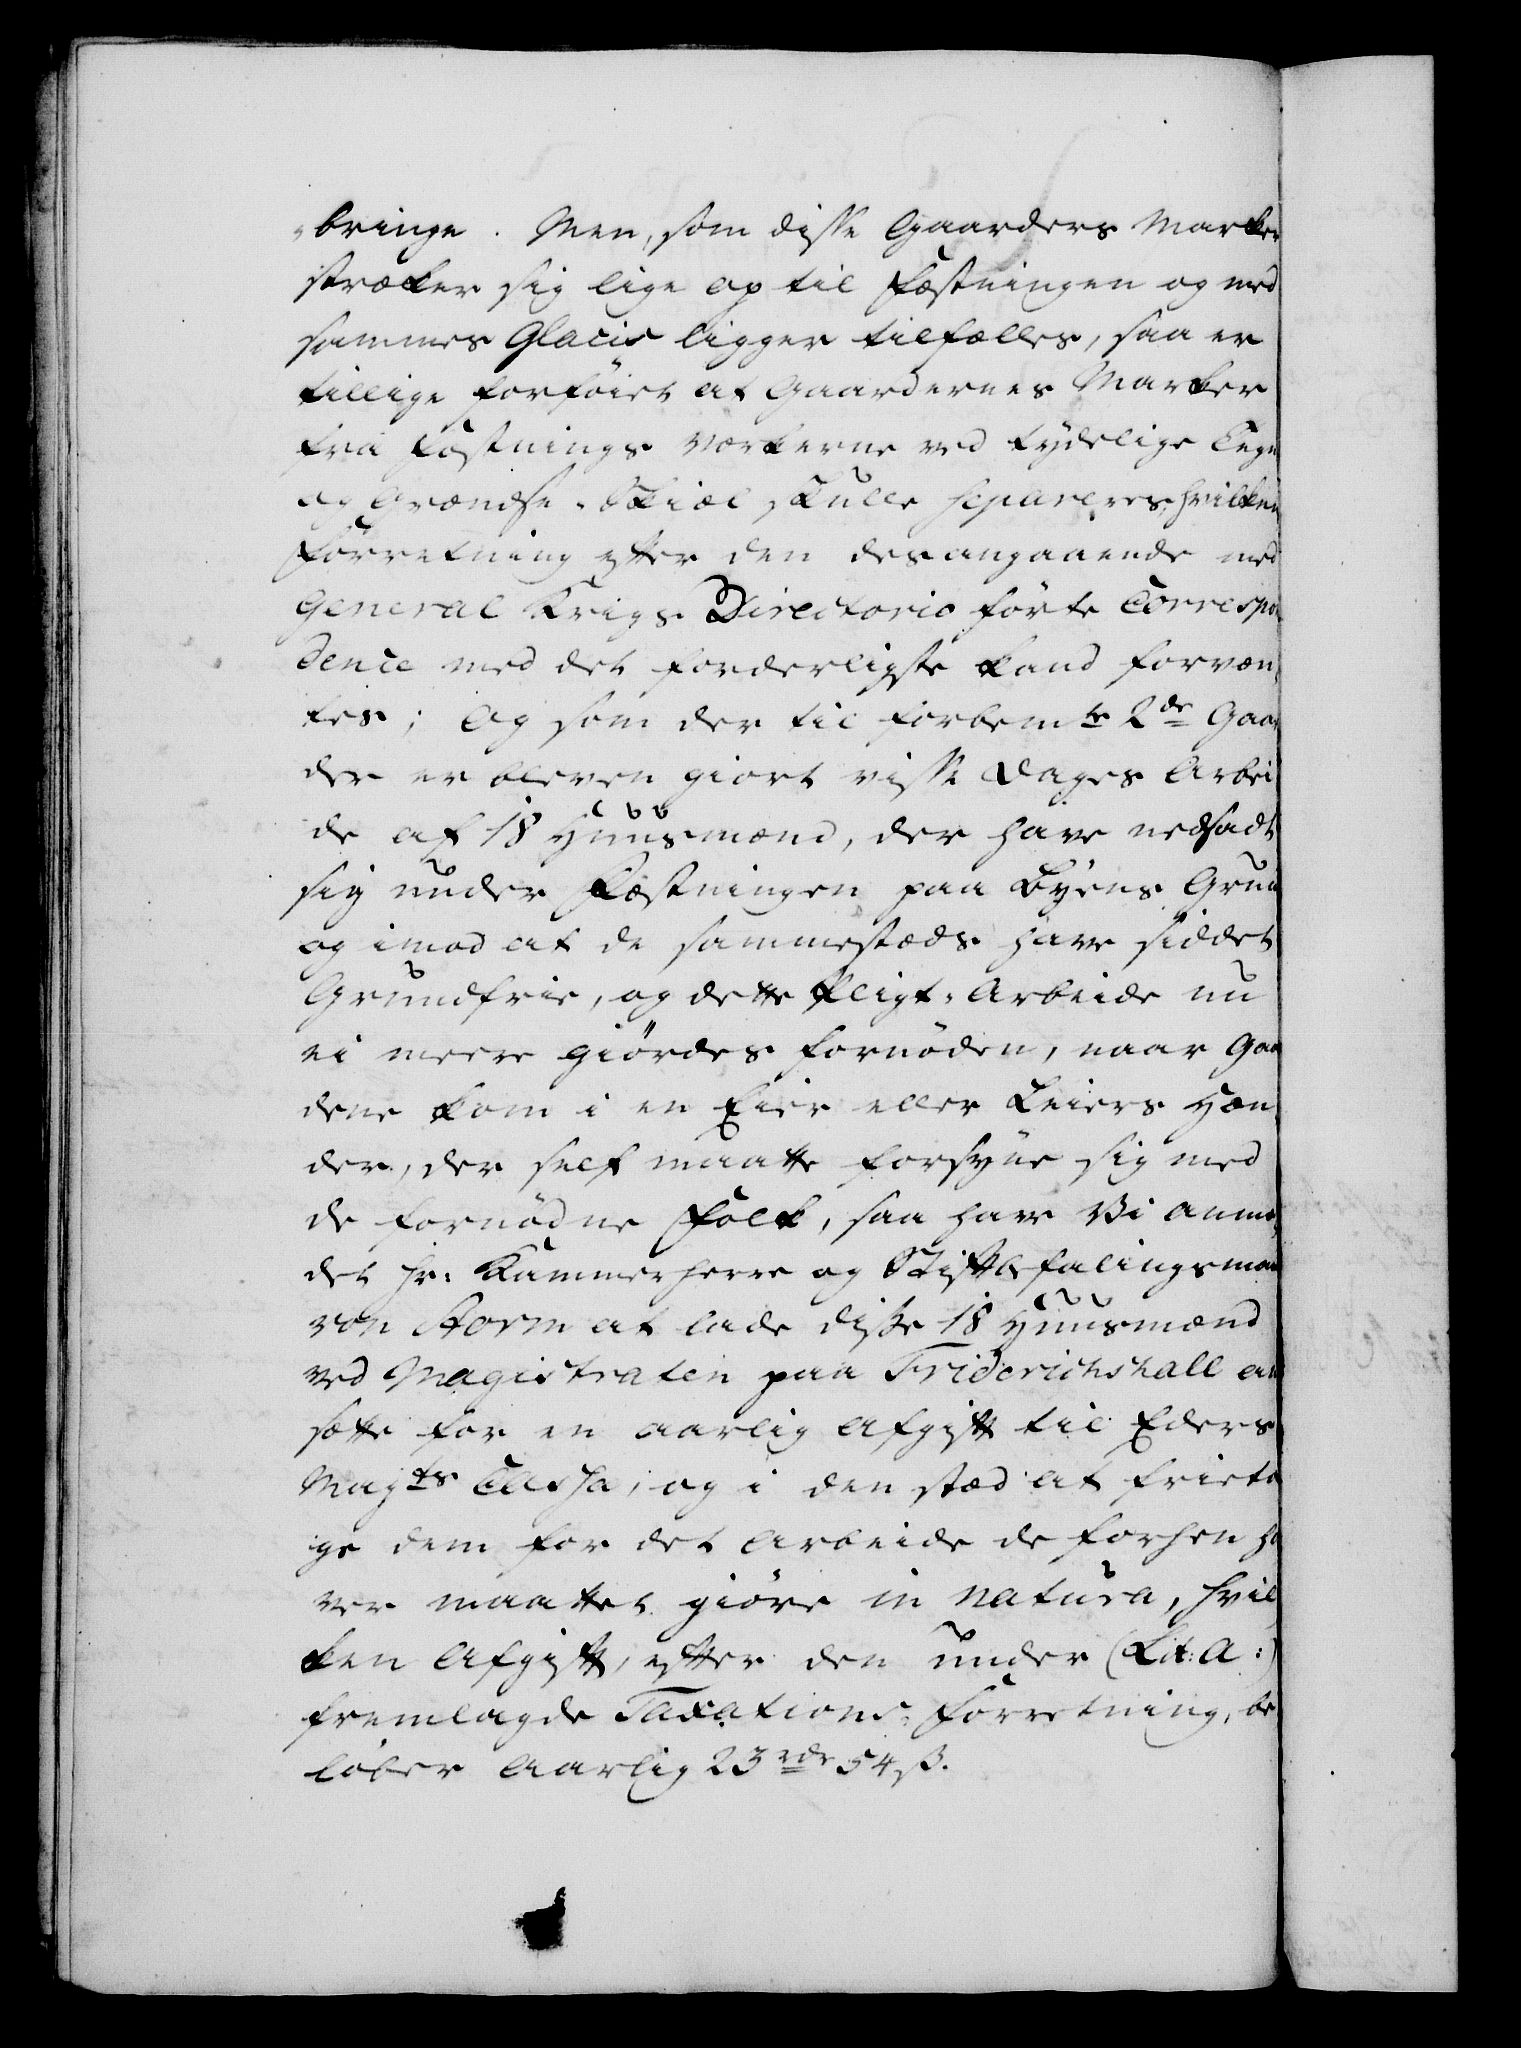 bringe. Men, som disse Gaarders Marker
strækker sig lige op til Fæstningen og med
sammes Glacis ligger tilfælles, saa er
tillige forføiet at Gaardernes Marker
fra Fæstnings Værkerne ved tydelige Tegn
og Grændse-Skiæl skulle separeres, hvilken
Forretning efter den desangaaende med
General Krigs Directorio førte Correspon
dence med det forderligste kand forvæn,
tes; Og som der til forbemte 2de Gaar
der er bleven giort visse Dages Arbei
de af 18 Huusmænd, der have nedsadt
sig under Fæstningen paa Byens Grund
og imod at de sammestæds have siddet
Grundfrie, og dette Pligt-Arbeide nu
ei meere giördes fornöden, naar Gaar
dene kom i en Eier eller Leiers Hæn,
der, der self maatte forsyne sig med
de fornödne Folk, saa have Vi anmo,
det Hr: Kammerherre og Stiftbefalingsmand
von Storm at lade disse 18 Huusmænd
ved Magistraten paa Friderichshall an
sætte for en aarlig Afgift til Eders
Mayts Cassa, og i den stæd at frieta
ge dem for det Arbeide de forhen ha
ver maattet giöre in natura, hvil
ken Afgift, efter den under (Lit: A:)
fremlagde Taxations-Forretning, be
löber Aarlig 23 rdr 54 ß.